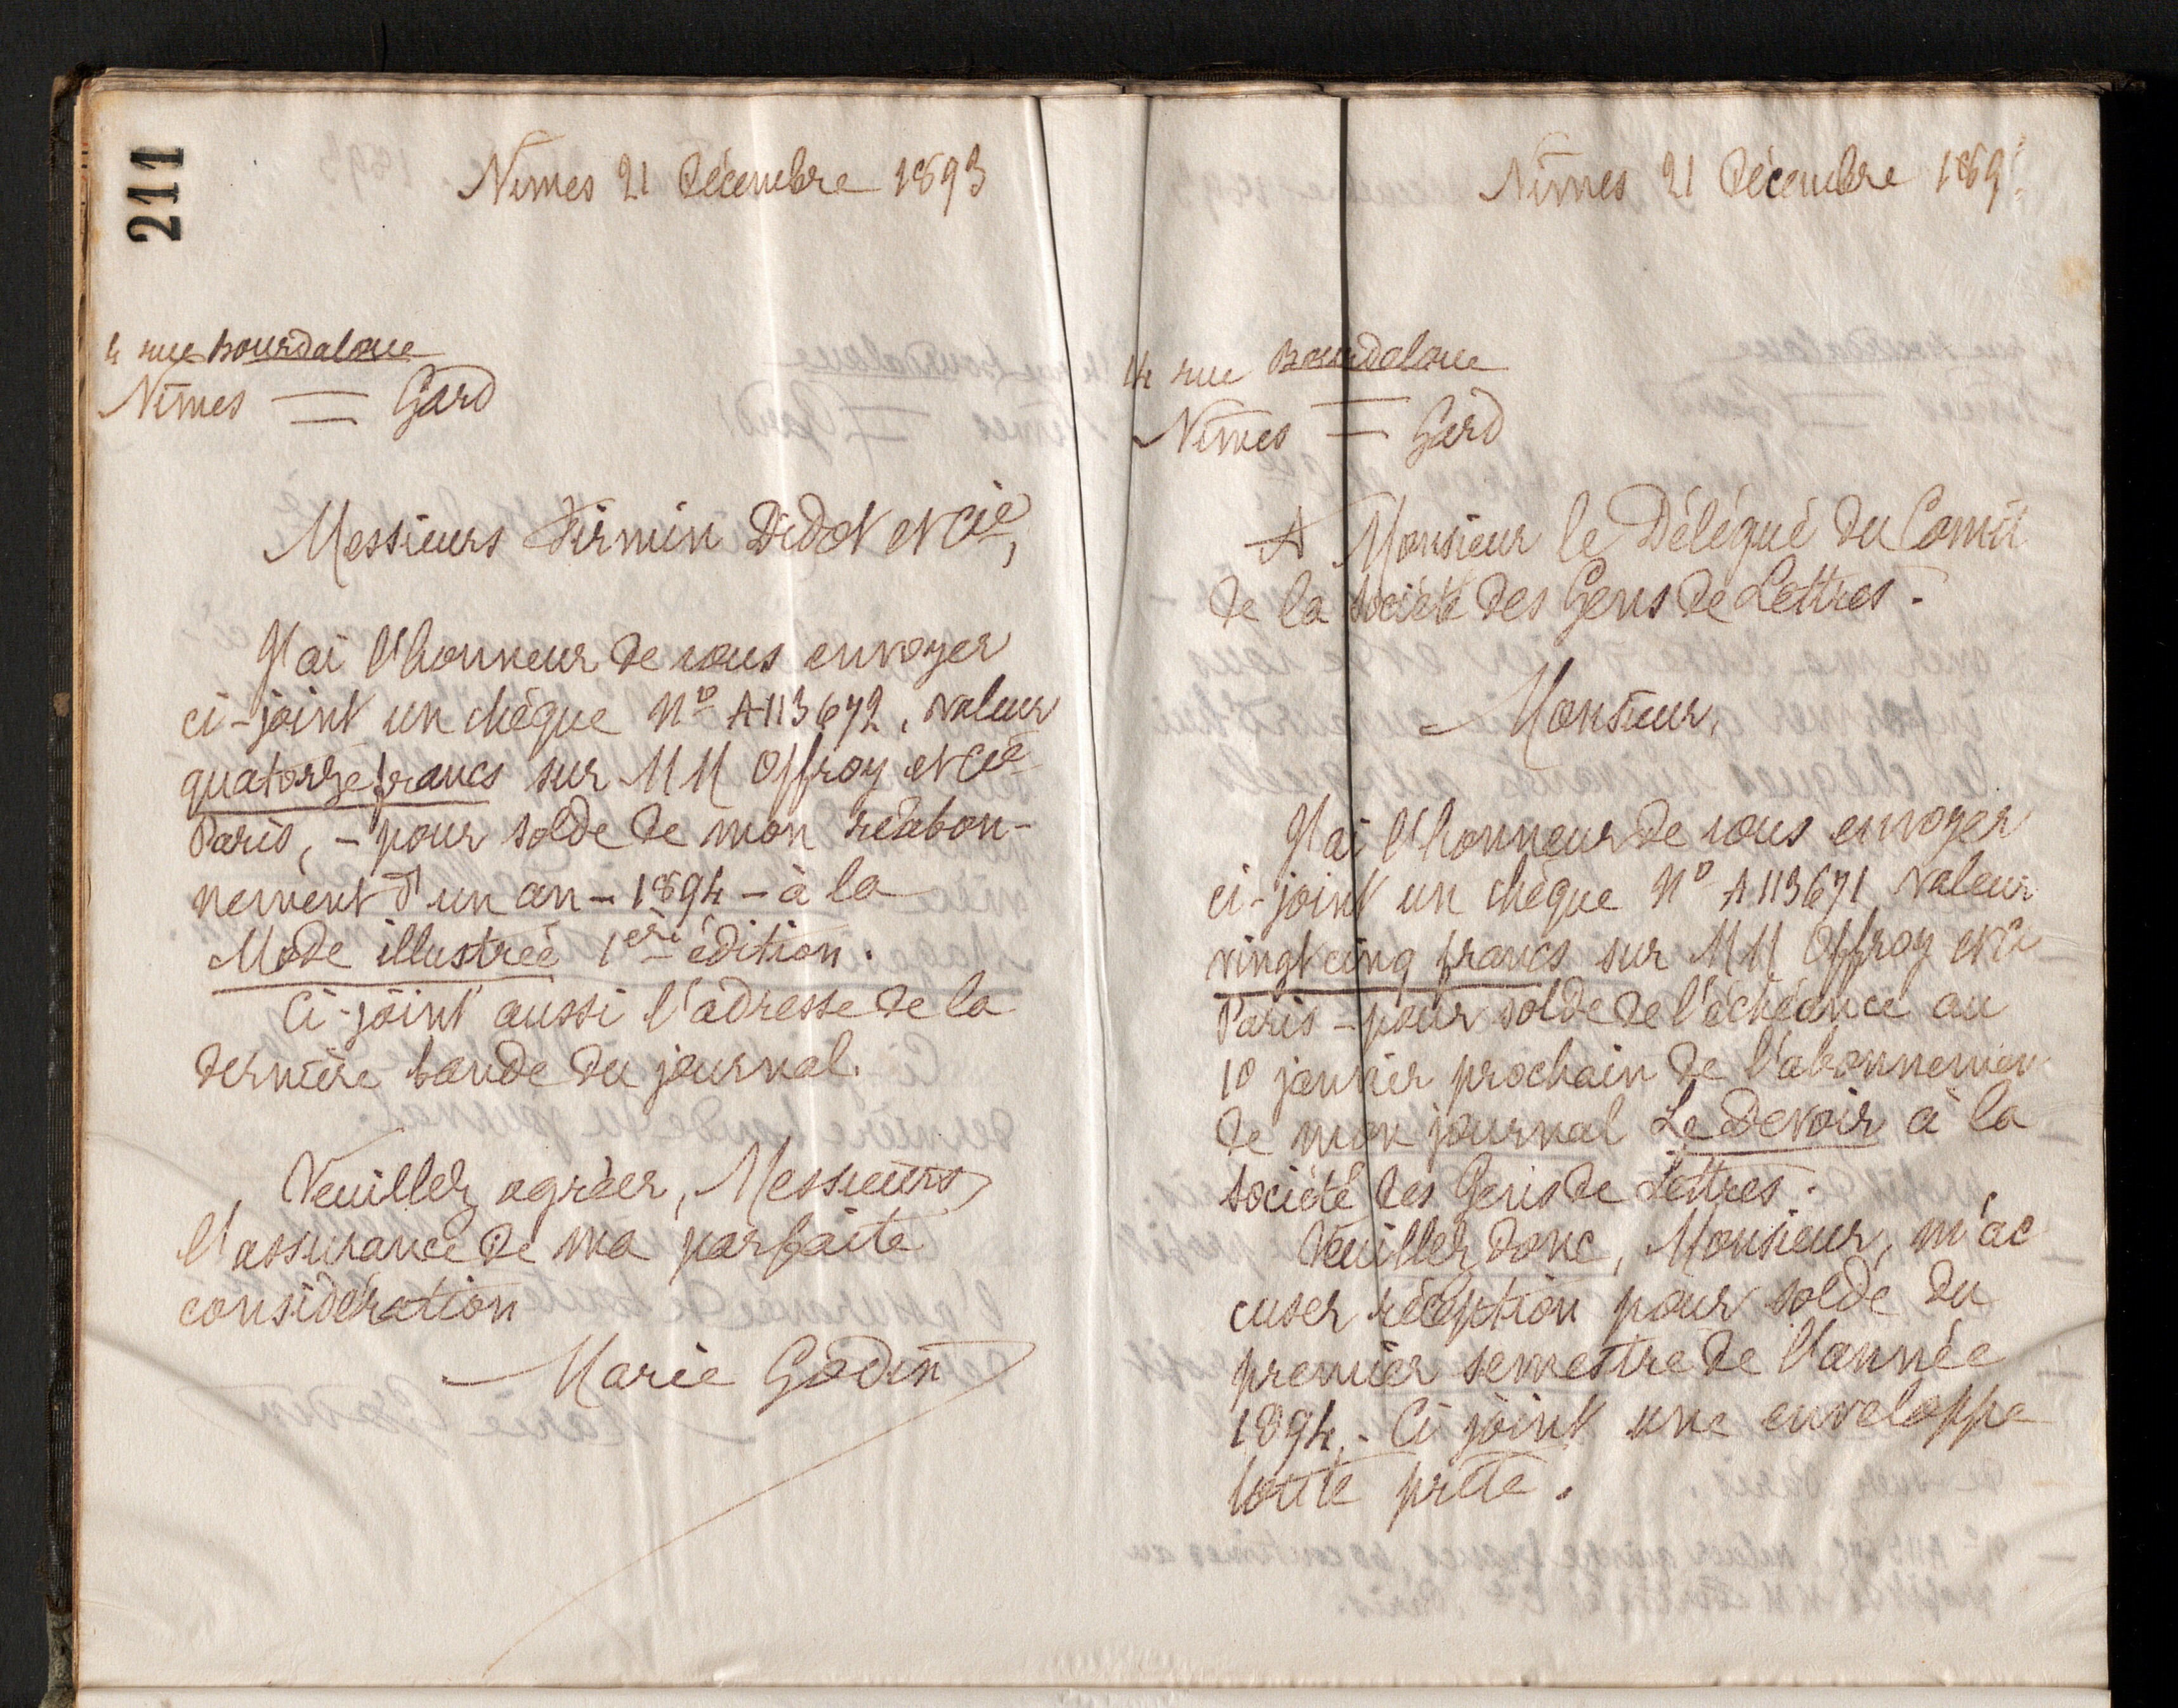 211
Nîmes 21 Décembre 1893
4 rue Bourdaloue
Nîmes = Gard
Messieurs Firmin Didot et Cie,
J'ai l'honneur de vous envoyer
ci-joint un chèque No A 113672, valeur
quatorze francs sur MM Offroy et Cie
Paris, - pour solde de mon réabon-
nement d'un an - 1894 - à la
Mode illustrée 1ère édition.
Ci-joint aussi l'adresse de la
dernière bande du journal.
Veuillez agréer, Messieurs
l'assurance de ma parfaite
considération
Marie Godin
Nîmes 21 Décembre 189
14 rue Bourdaloue
Nîmes = Gard
A Monsieur le Délégué du Comit
de la Société des Gens de Lettres.
Monsieur,
J'ai l'honneur de vous envoyer
ci-joint un chèque No A 113671 valeur
vingt cinq francs sur MM Offroy et Cie
Paris - pour solde de l'échéance au
10 janvier prochain de l'abonnemen
de mon journal Le Devoir à la
Société des Gens de Lettres.
Veuillez donc, Monsieur, m'ac
cuser réception pour solde du
premier semestre de l'année
1894. - Ci joint une enveloppe
toute prête.